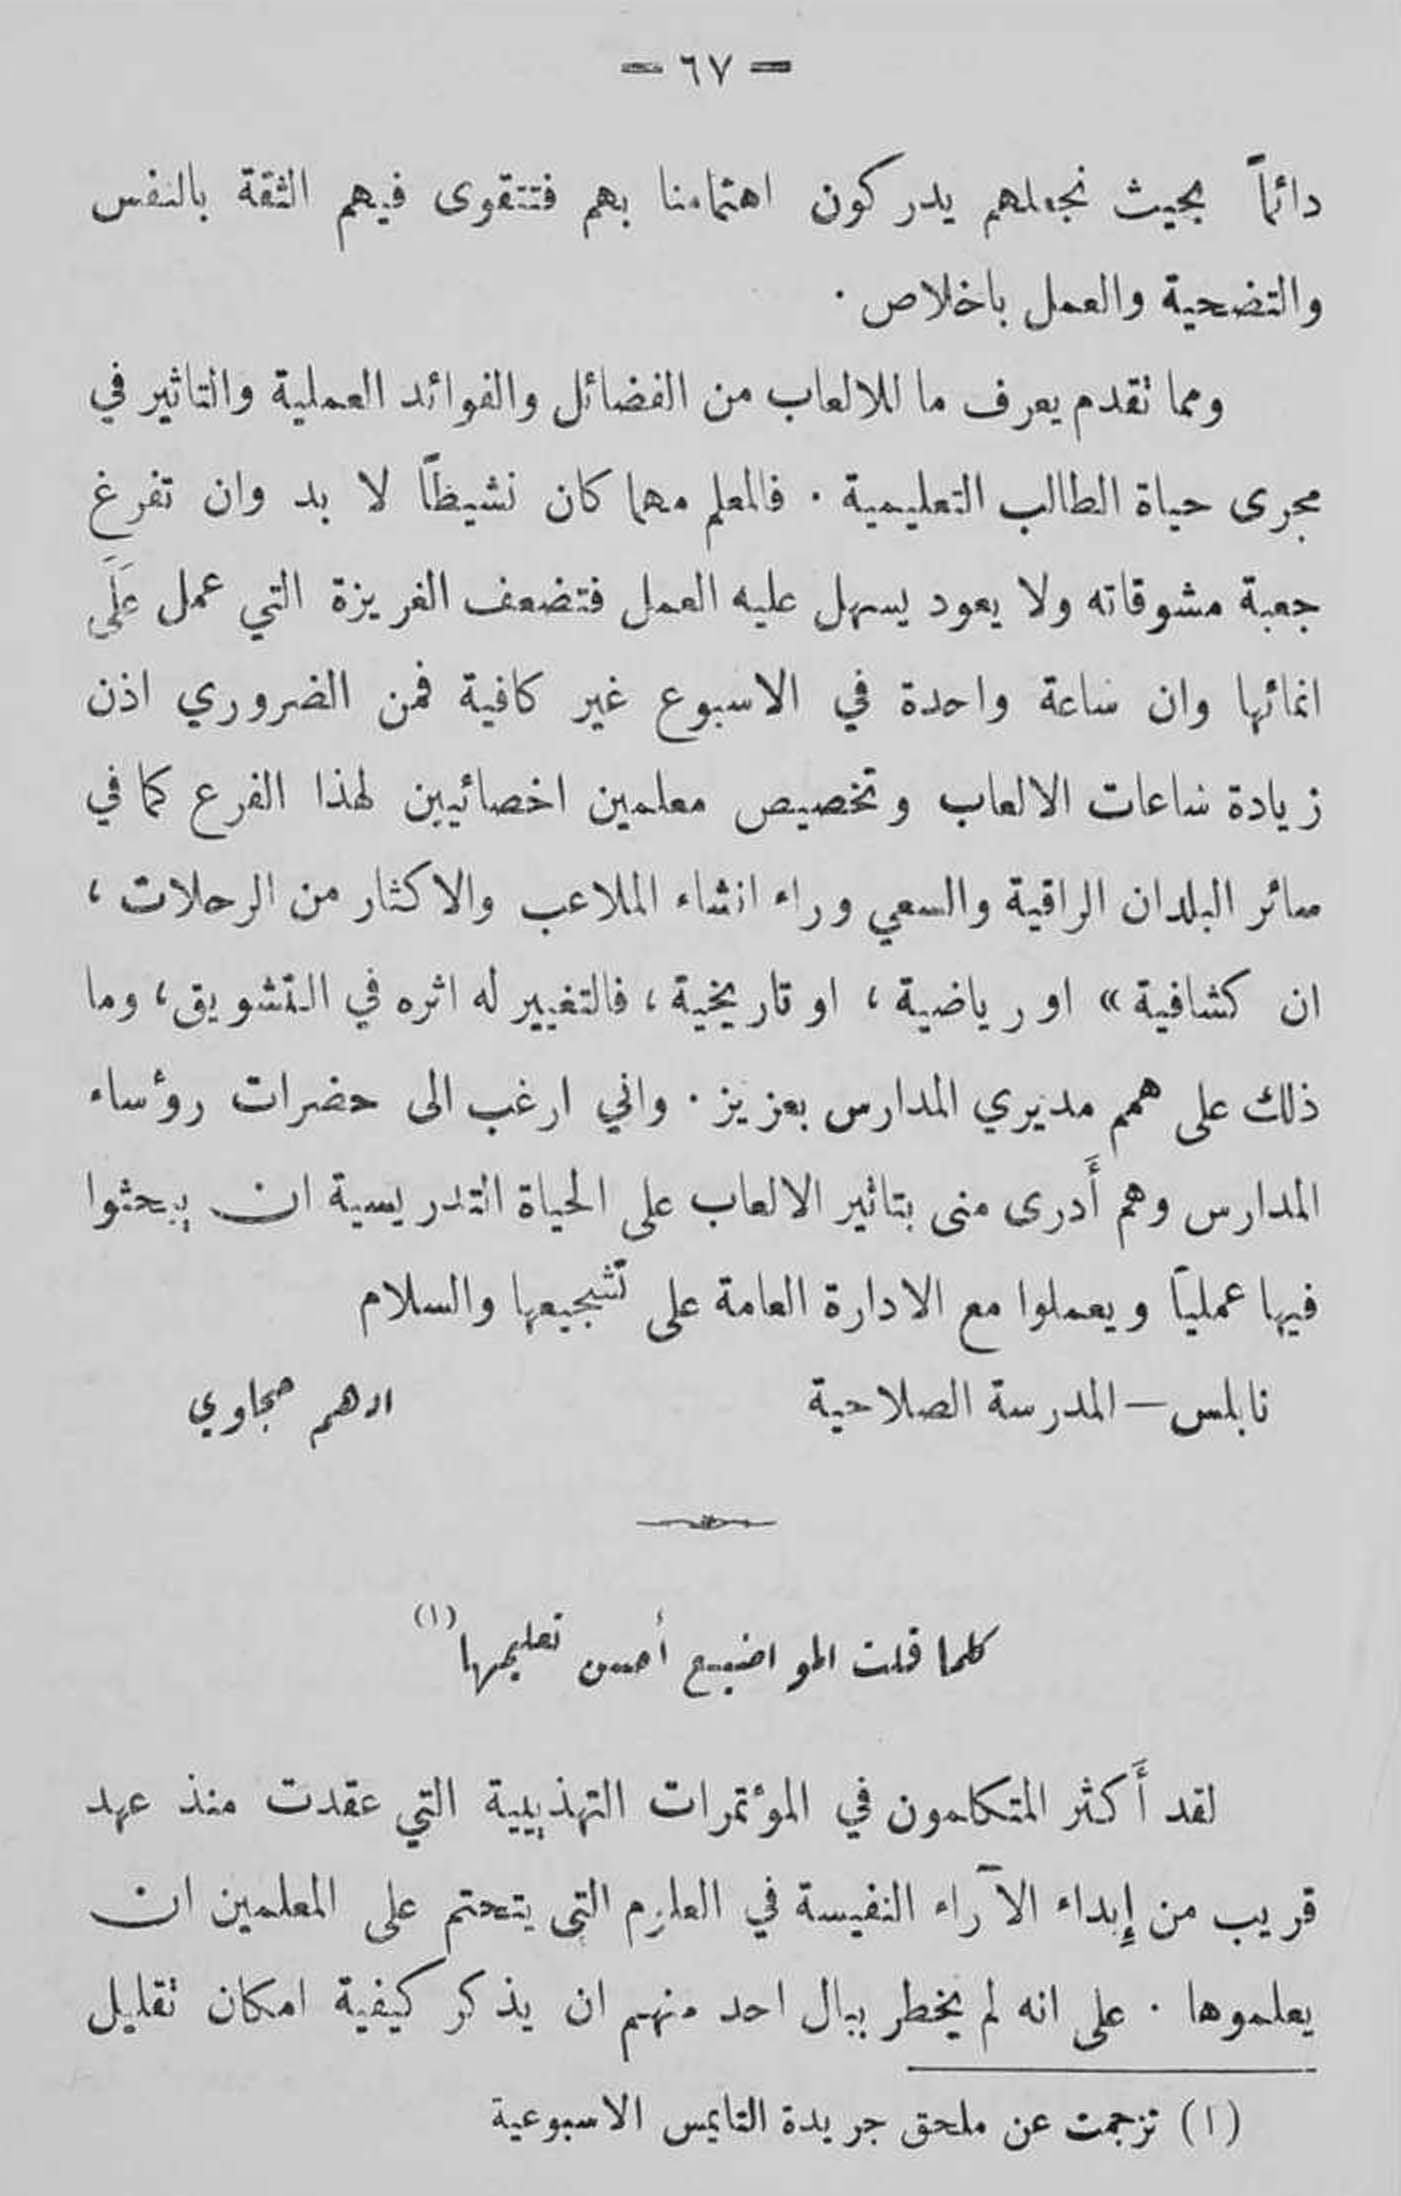 — ٦٧ —
دائماً بحيث نجعلهم يدركون اهتمامنا بهم فتتقوى فيهم الثقة بالنفس
والتضحية والعمل باخلاص .
ومما تقدم يعرف ما للالعاب من الفضائل والفوائد العملية والتاثير في
مجرى حياة الطالب التعليمية . فالمعلم مهما كان نشيطاً لا بد وان تفرغ
جعبة مشوقاته ولا يعود يسهل عليه العمل فتضعف الغريزة التي عمل عَلَى
انمائها وان ساعة واحدة في الاسبوع غير كافية فمن الضروري اذن
زيادة ساعات الالعاب وتخصيص معلمين اخصائيين لهذا الفرع كما في
سائر البلدان الراقية والسعي وراء انشاء الملاعب والاكثار من الرحلات ،
ان كشافية » او رياضية ، او تاريخية ، فالتغيير له اثره في التشويق ، وما
ذلك على همم مديري المدارس بعزيز . واني ارغب الى حضرات روؤساء
المدارس وهم أَدرى منى بتاثير الالعاب على الحياة التدريسية ان يبحثوا
فيها عمليًا ويعملوا مع الادارة العامة على تشجيعها والسلام
نابلس — المدرسة الصلاحية ادهم حجاوي
كلما قلت المواضيع أحسن تعليمها (١)
لقد أَكثر المتكلمون في المؤتمرات التهذيبية التي عقدت منذ عهد
قريب من إِبداء الآراء النفيسة في العلوم التى يتحتم على المعلمين ان
يعلموها . على انه لم يخطر ببال احد منهم ان يذكر كيفية امكان تقليل
(١) تزجمت عن ملحق جريدة التايمس الاسبوعية